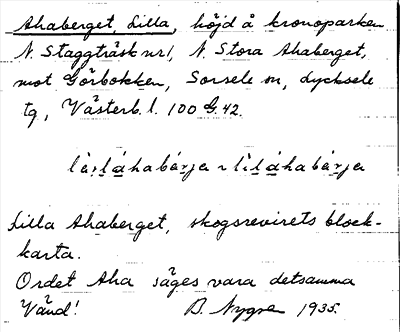 Ahaberget, Lilla, höjd å kronoparken
N. Staggträsk nr 1, N. Stora Ahaberget,
mot Görbokken, Sorsele sn, Lycksele
tg, Västerb. l. 100 G. 42.
Lilla Ahaberget, skogsrevirets block-
karta.
Ordet Aha säges vara detsamma
Vänd! B. Nygren 1935.